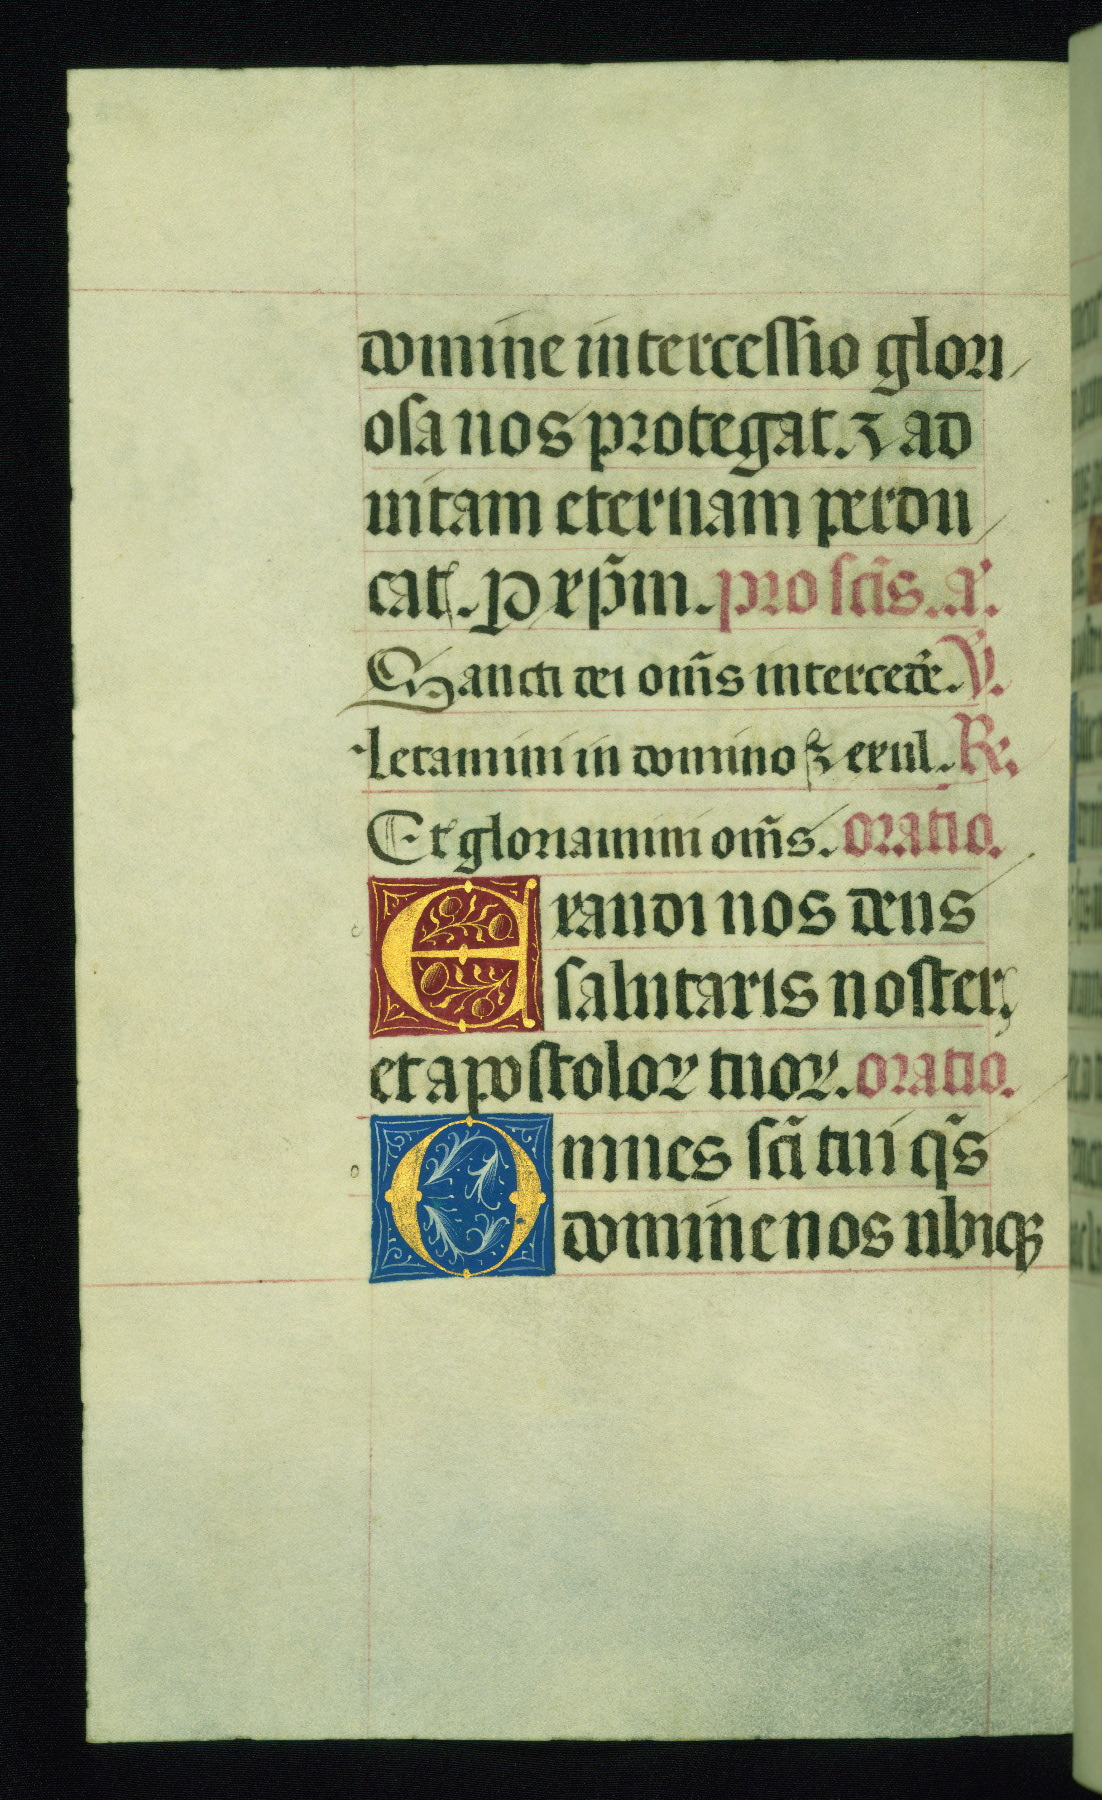 domine intercessio glori
osa nos protegat. ⁊ ad
uitam eternam perdu
cat. ꝑ xp̄m. pro sc̄is. a᷑.
Sancti dei om̄s intercede᷑. ℣.
letamini in domino ⁊ exul. ℟.
Et gloriamini om̄s. oratio.
Exaudi nos deus
salutaris noster,
et apostoloꝝ tuoꝝ. oratio.
Omnes sc̄i tui q̄s
domine nos ubiqꝫ